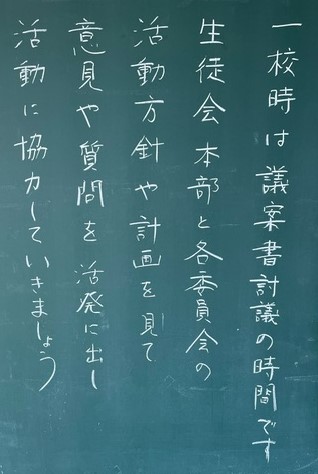 一校時は議案書討議の時間です
生徒会本部と各委員会の
活動方針や計画を見て
意見や質問を活発に出し
活動に協力していきましょう